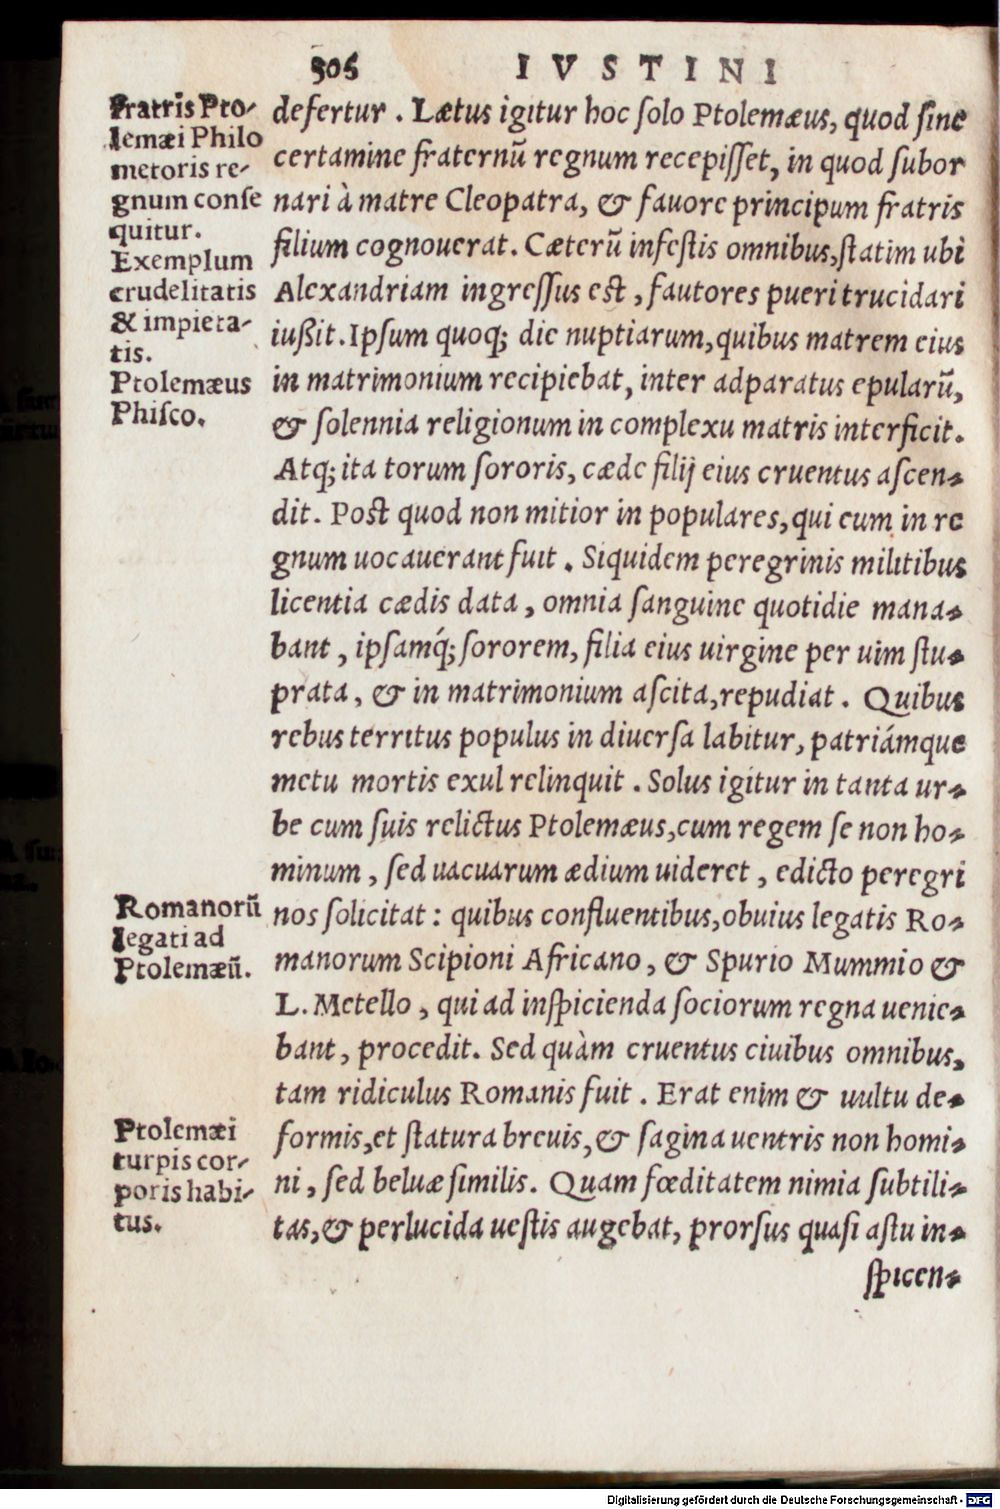 306 IVSTINI
Fratris Pto-
lemæi Philo
metoris re-
gnum conse
quitur.
Exemplum
crudelitatis
& impieta-
tis.
Ptolemæus
Phisco.
defertur. Lætus igitur hoc solo Ptolemæus, quod sine
certamine fraternū regnum recepisset, in quod subor
nari à matre Cleopatra, & fauore principum fratris
filium cognouerat. Cæterū infestis omnibus, statim ubi
Alexandriam ingressus est, fautores pueri trucidari
iußit. Ipsum quoq; die nuptiarum, quibus matrem eius
in matrimonium recipiebat, inter adparatus epularū,
& solennia religionum in complexu matris interficit.
Atq; ita torum sororis, cæde filij eius cruentus ascen-
dit. Post quod non mitior in populares, qui eum in re
gnum uocauerant fuit. Siquidem peregrinis militibus
licentia cædis data, omnia sanguine quotidie mana-
bant, ipsamq́; sororem, filia eius uirgine per uim stu-
prata, & in matrimonium ascita, repudiat. Quibus
rebus territus populus in diuersa labitur, patriámque
metu mortis exul relinquit. Solus igitur in tanta ur-
be cum suis relictus Ptolemæus, cum regem se non ho-
minum, sed uacuarum ædium uideret, edicto peregri
nos solicitat: quibus confluentibus, obuius legatis Ro-
manorum Scipioni Africano, & Spurio Mummio &
L. Metello, qui ad inspicienda sociorum regna uenie-
bant, procedit. Sed quàm cruentus ciuibus omnibus,
tam ridiculus Romanis fuit. Erat enim & uultu de-
formis, et statura breuis, & sagina uentris non homi-
ni, sed beluæ similis. Quam fœditatem nimia subtili-
tas, & perlucida uestis augebat, prorsus quasi astu in-
spicen-
Romanorū
legati ad
Ptolemæū.
Ptolemæi
turpis cor-
poris habi-
tus.
Digitalisierung gefördert durch die Deutsche Forschungsgemeinschaft - DFG